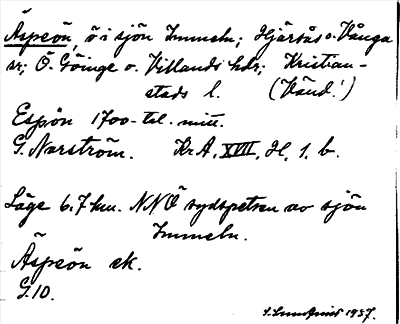 Äspeön, ö i sjön Immeln; Hjärsås o. Vånga
sr; Ö. Göinge o. Villands hdr; Kristian-
stads l. (Känd!)
Espön 1700-tal. mitt.
G. Narström. Kr. A, XVIII, H, 1. b.
Läge 6,7 km. NNÖ sydspetsen av sjön
Immeln.
Äspeön ek.
G. 10.
S. Lundqvist 1937.